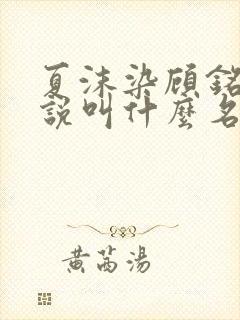 夏沫染顾铭
說叫什麼名
黄芮湯